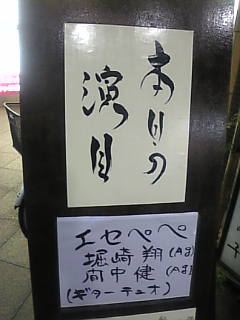 本日の
演目
エセペペ
堀崎 翔(Ag)
間中 健(Ag)
(ギターデュオ)